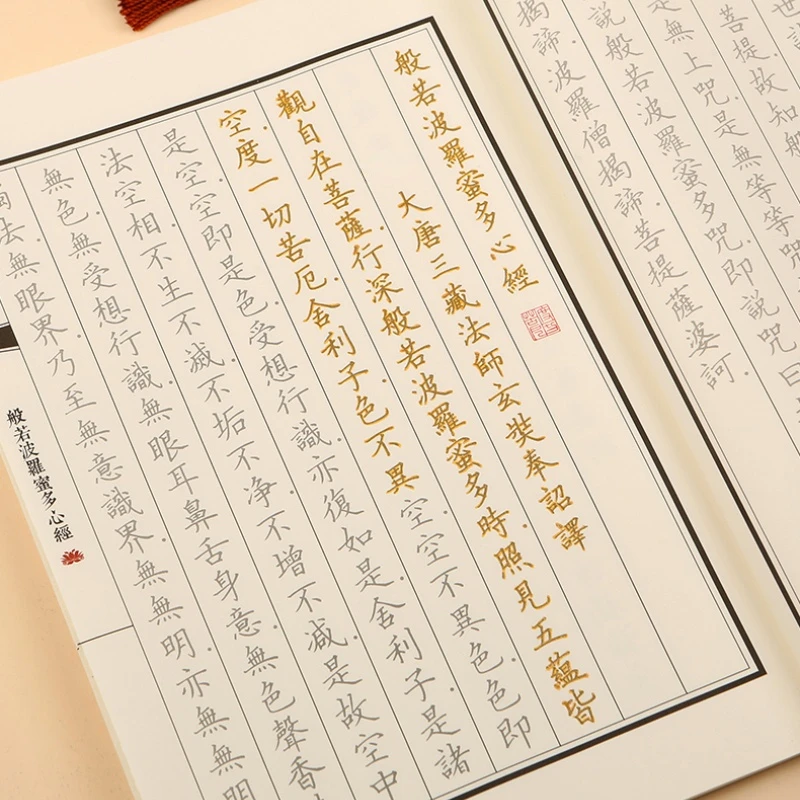 般若波羅蜜多心經
大唐三藏法師玄奘奉詔譯
觀自在菩薩行深般若波羅蜜多時照見五蘊皆
空度一切苦厄舍利子色不異空空不異色色即
是空空即是色受想行識亦復如是舍利子是諸
法空相不生不滅不垢不净不增不减是故空中
無色無受想行識無眼耳鼻舌身意無色聲香
法無眼界乃至無意識界無無明亦無無明
般若波羅蜜多心經
世
菩提故知般
是無上咒是無等等咒
說般若波羅蜜多咒即說咒曰
揭諦波羅僧揭諦菩提薩婆訶